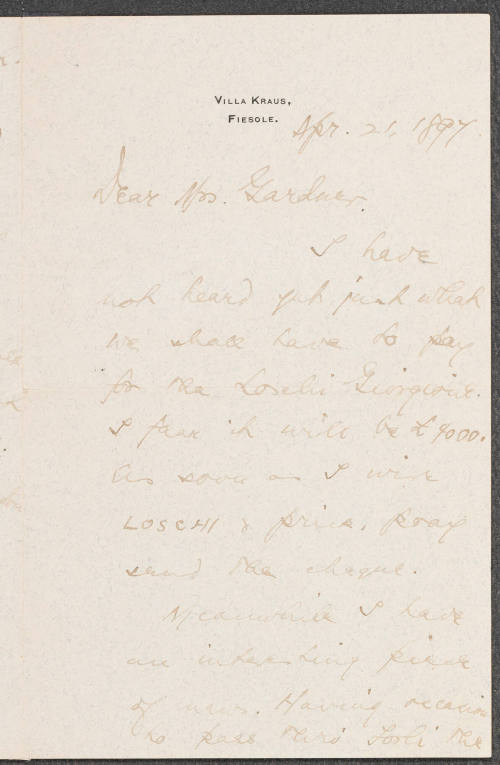 VILLA KRAUS,
FIESOLE.
Apr. 21, 1897.
Dear Mrs. Gardner,
I have
not heard yet just what
we shall have to pay
for the Loschi Giorgione.
I fear it will be £4000.
As soon as I wire
LOSCHI & price, pray
send the cheque.
Meanwhile I have
an interesting piece
of news. Having occasion
to pass thro' Forlì the